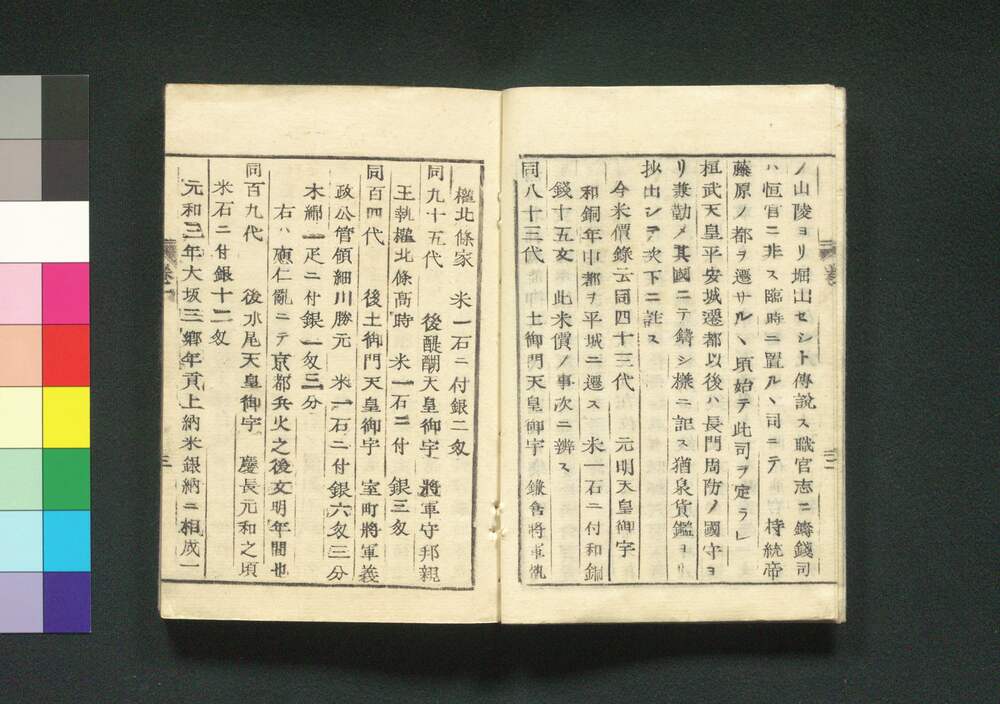 ノ山陵ヨリ堀出セシト傳説ス職官志ニ鑄錢司
ハ恒官ニ非ス臨時ニ置ルヽ司ニテ 持統帝
藤原ノ都ヲ遷サルヽ頃始テ此司ヲ定ラ」
桓武天皇平安城遷都以後ハ長門周防ノ國守ヨ
リ兼勤メ其國ニテ鑄シ樣ニ記ス猶泉貨鑑ヨリ
抄出シテ次下ニ註ス
今米價錄云同四十三代 元明天皇御宇
和銅年中都ヲ平城ニ遷ス 米一石ニ付和銅
錢十五文 此米價ノ事次ニ辨ス
同八十三代 土御門天皇御宇鎌倉將軍執
權北條家 米一石ニ付銀二匁
同九十五代 後醍醐天皇御宇 將軍守邦親
王執權北條高時 米一石ニ付 銀三匁
同百四代 後土御門天皇御宇 室町將軍義
政公管領細川勝元 米一石ニ付銀六匁三分
木綿一疋ニ付銀一匁三分
右ハ應仁亂ニテ京都兵火之後文明年間也
同百九代 後水尾天皇御宇 慶長元和之頃
米石ニ付銀十二匁
元和三年大坂三鄉年貢上納米銀納ニ相成一
卷一
三